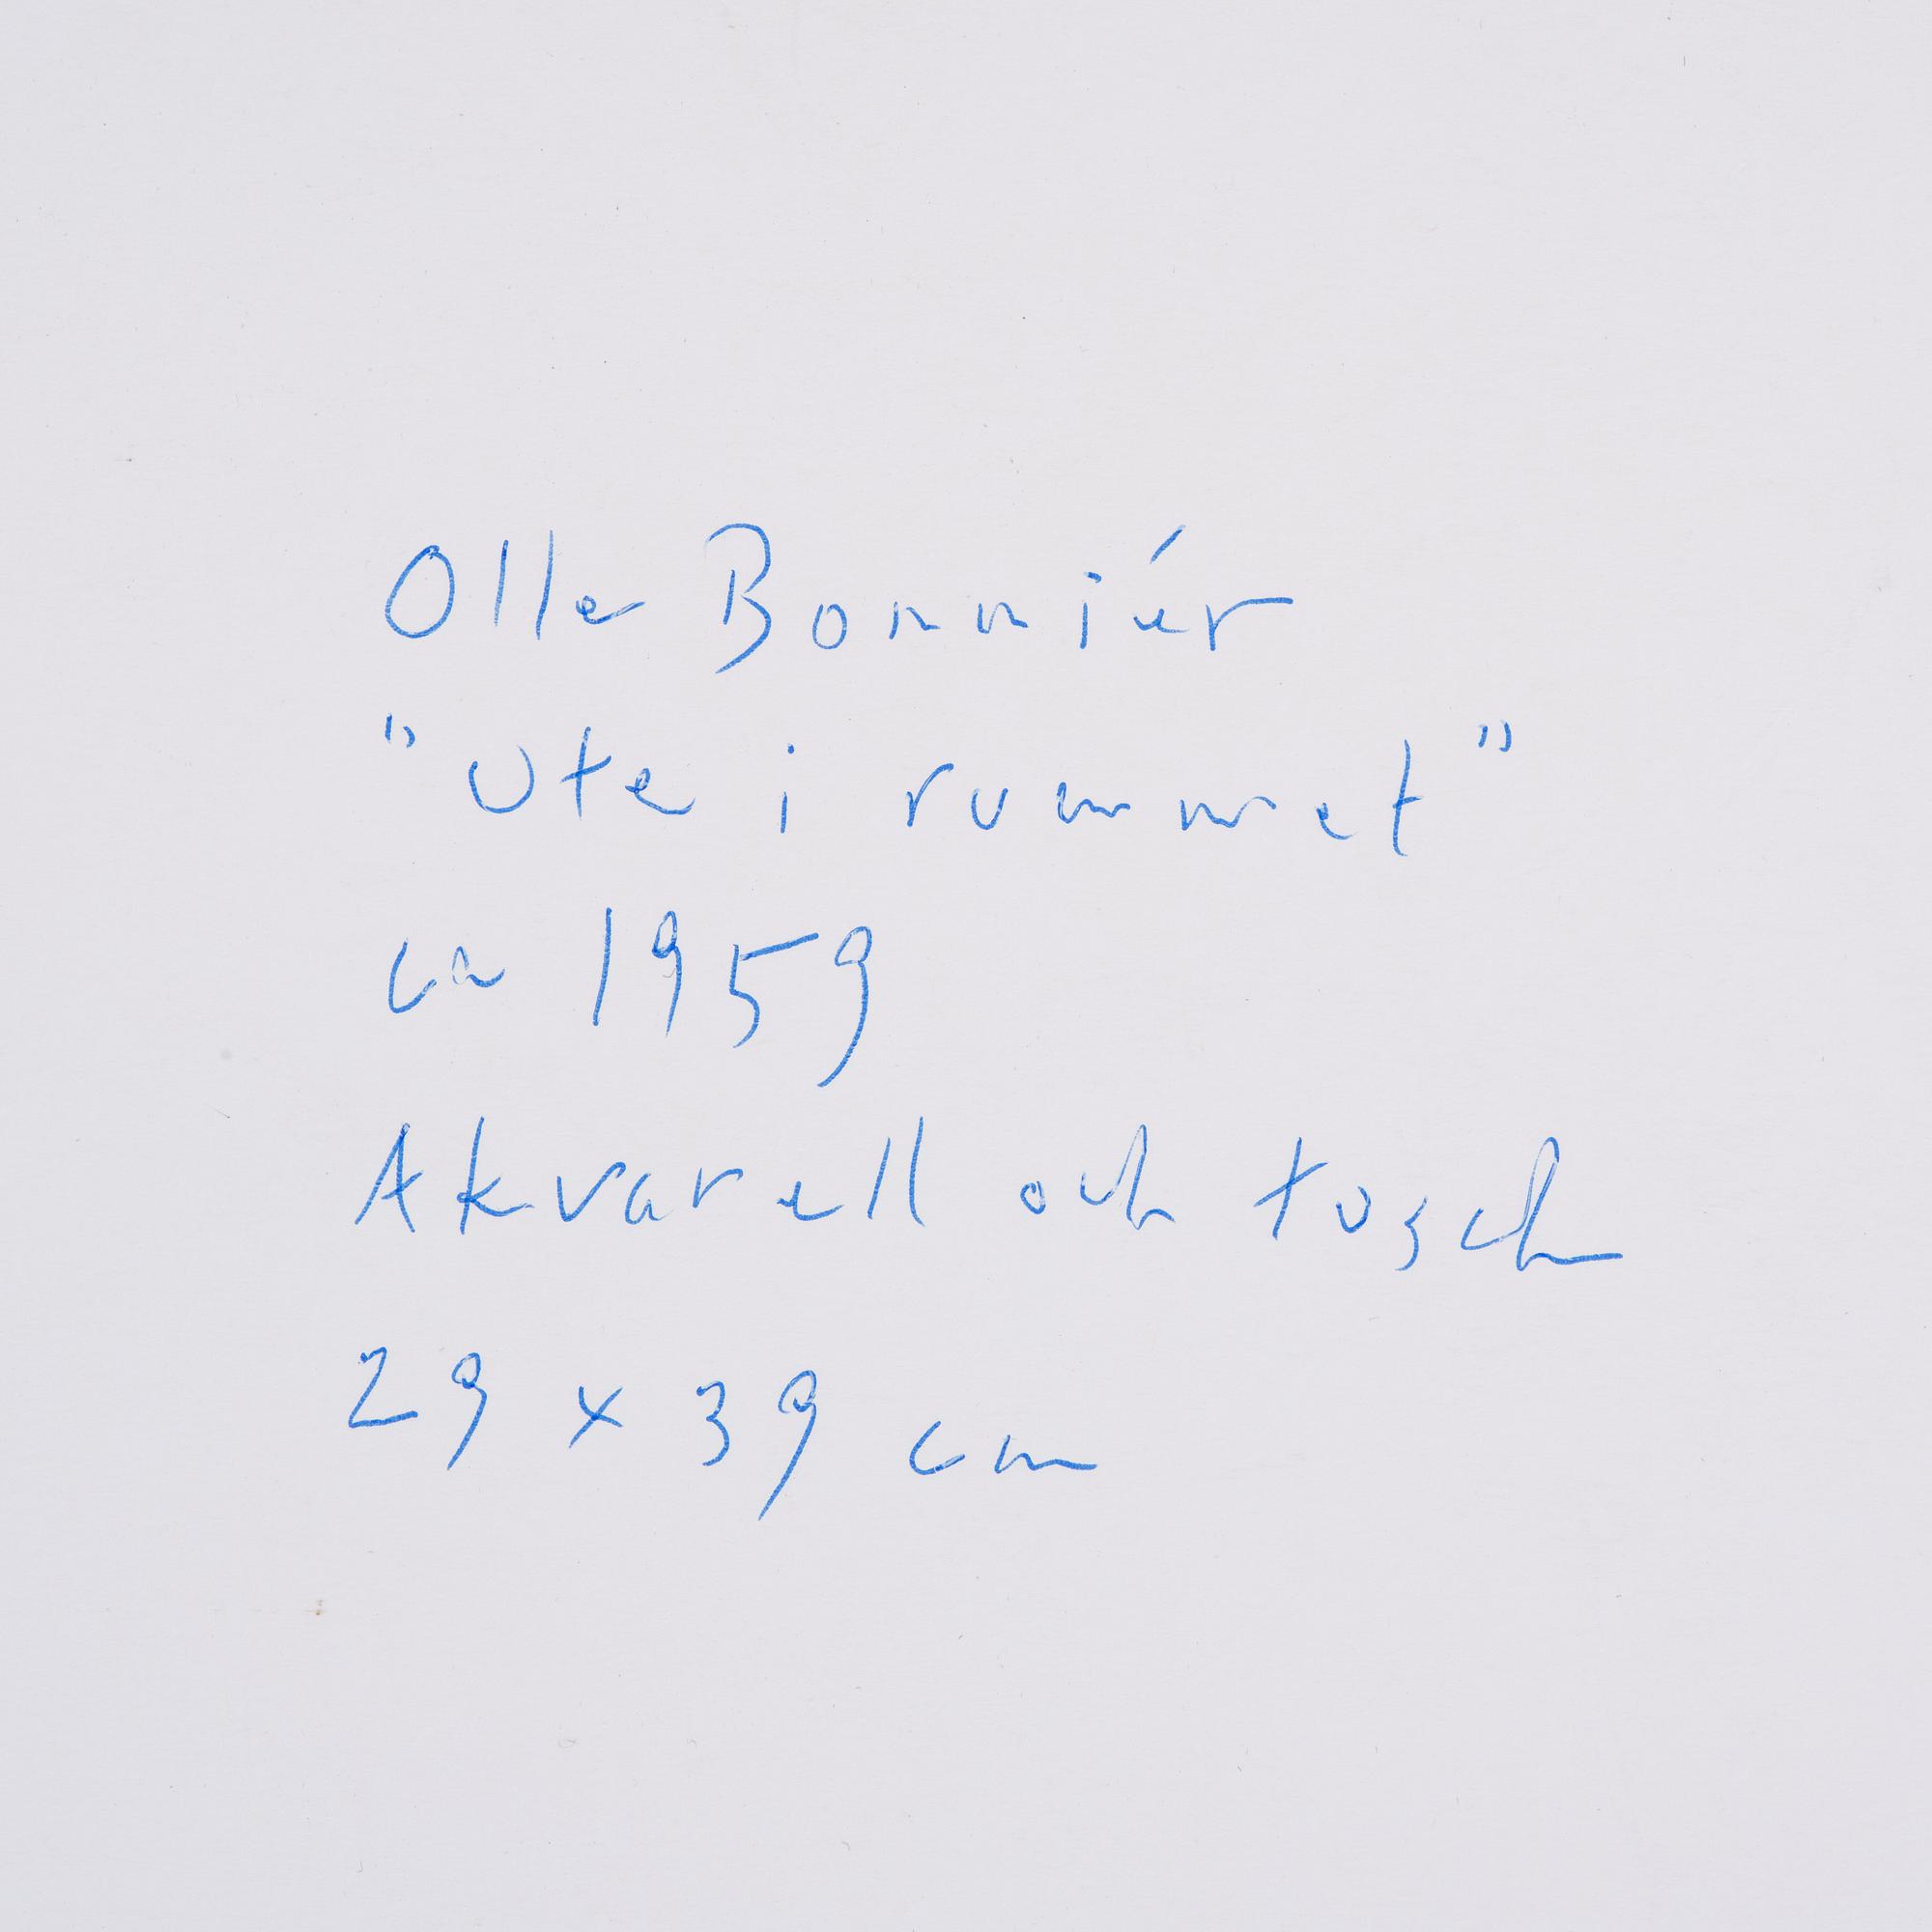 Olle Bonniér
"Ute i rummet"
ca 1959
Akvarell och tusch
29 x 39 cm